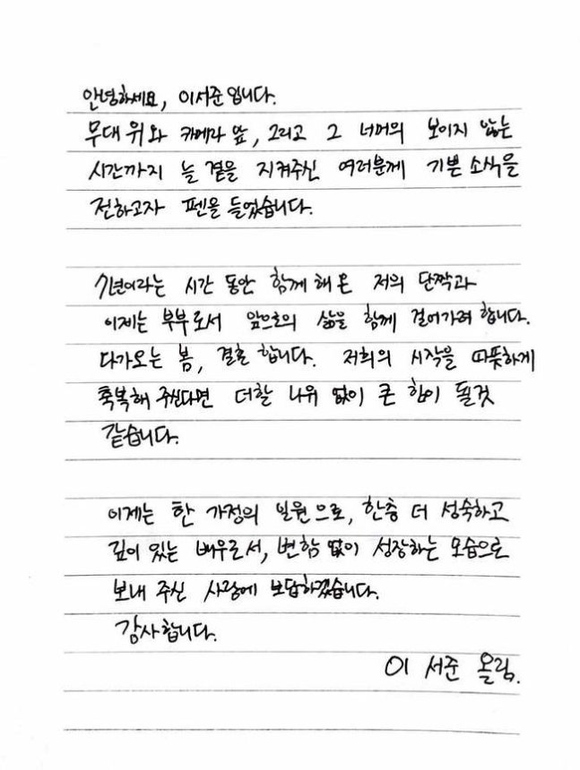 안녕하세요, 이서준입니다.
무대 위와 카메라 앞, 그리고 그 너머의 보이지 않는
시간까지 늘 곁을 지켜주신 여러분께 기쁜 소식을
전하고자 펜을 들었습니다.
7년이라는 시간 동안 함께 해 온 저의 단짝과
이제는 부부로서 앞으로의 삶을 함께 걸어가려 합니다.
다가오는 봄, 결혼 합니다. 저희의 시작을 따뜻하게
축복해 주신다면 더할 나위 없이 큰 힘이 될것
같습니다.
이제는 한 가정의 일원으로, 한층 더 성숙하고
깊이 있는 배우로서, 변함 없이 성장하는 모습으로
보내 주신 사랑에 보답하겠습니다.
감사합니다.
이 서준 올림.